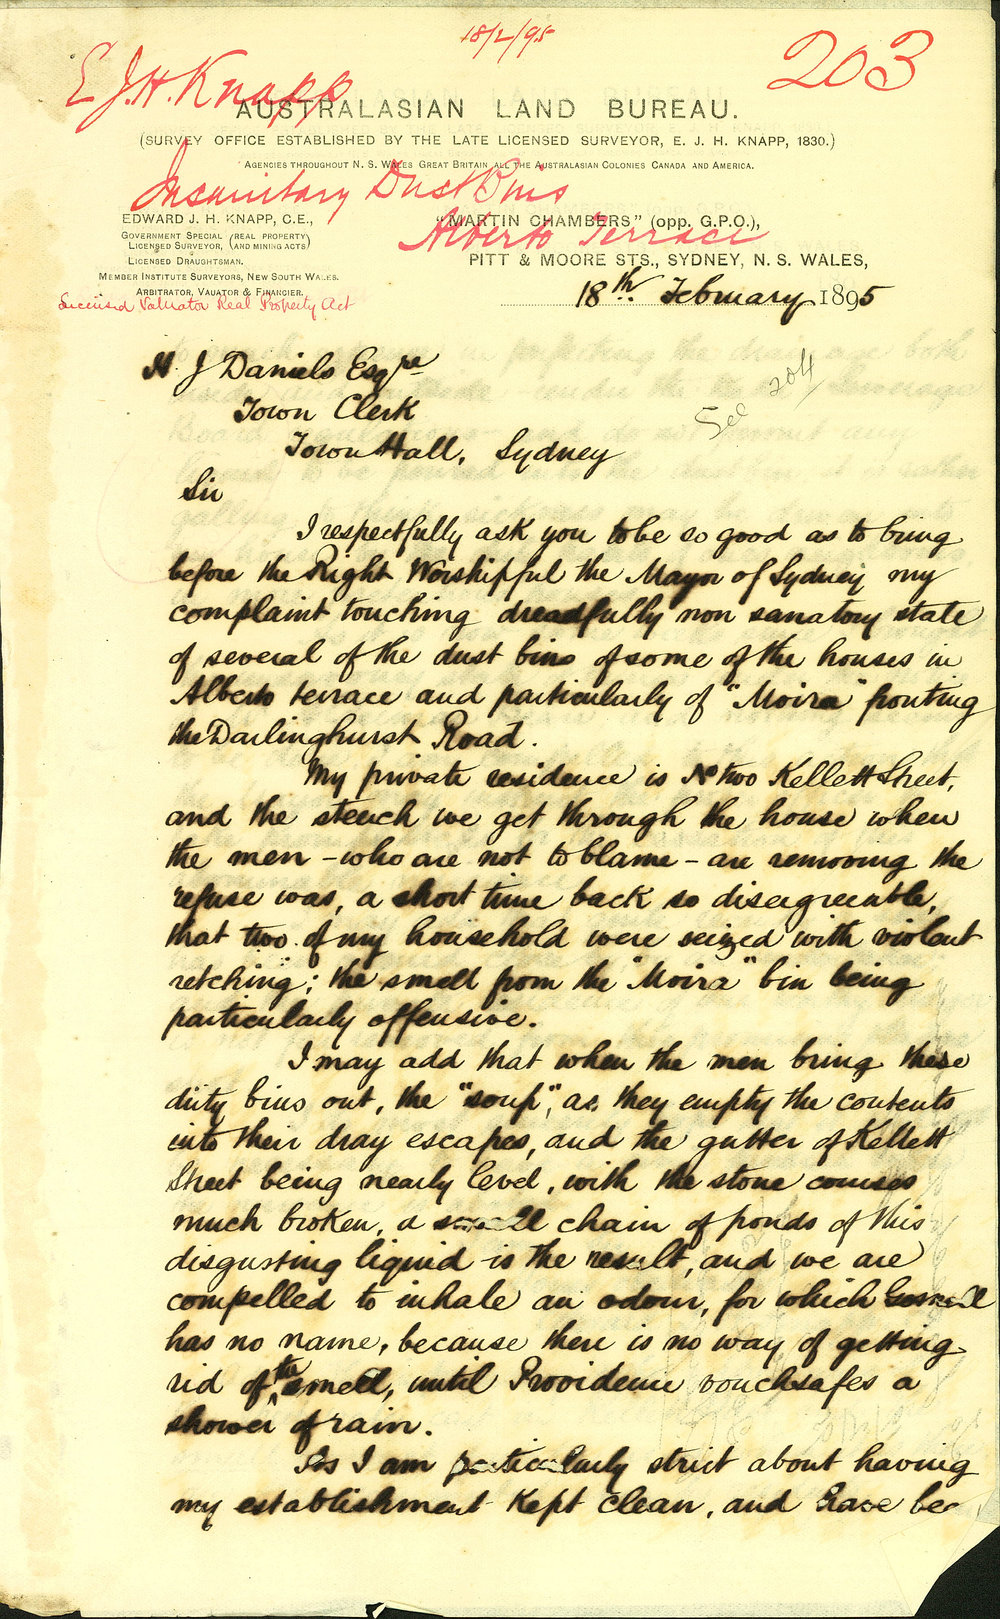 18/2/95
203
E J. H. Knapp
AUSTRALASIAN LAND BUREAU.
(SURVEY OFFICE ESTABLISHED BY THE LATE LICENSED SURVEYOR, E. J. H. KNAPP, 1830.)
AGENCIES THROUGHOUT N. S. WALES GREAT BRITAIN ALL THE AUSTRALASIAN COLONIES CANADA AND AMERICA.
Insanitary Dust Bins
Alberto Terrace
EDWARD J. H. KNAPP, C.E.,
GOVERNMENT SPECIAL (REAL PROPERTY)
LICENSED SURVEYOR, (AND MINING ACTS)
LICENSED DRAUGHTSMAN.
MEMBER INSTITUTE SURVEYORS, NEW SOUTH WALES.
ARBITRATOR, VAUATOR & FINANCIER.
Licensed Valuator Real Property Act
"MARTIN CHAMBERS" (opp. G.P.O.),
PITT & MOORE STS., SYDNEY, N. S. WALES,
18th. February 1895
H. J Daniels Esqre
Town Clerk
Town Hall, Sydney
See 204
Sir
I respectfully ask you to be so good as to bring
before the Right Worshipful the Mayor of Sydney my
complaint touching dreadfully non sanatory state
of several of the dust bins of some of the houses in
Alberto terrace and particularly of "Moira" fronting
the Darlinghurst Road.
My private residence is No two Kellett Street,
and the stench we get through the house when
the men - who are not to blame - are removing the
refuse was, a short time back so disagreeable,
that two of my household were seized with violent
retching; the smell from the "Moira" bin being
particularly offensive.
I may add that when the men bring these
dirty bins out, the "soup", as they empty the contents
into their dray escapes, and the gutter of Kellett
Street being nearly level, with the stone courses
much broken, a small chain of ponds of this
disgusting liquid is the result, and we are
compelled to inhale an odour, for which
has no name, because there is no way of getting
rid of the smell, until Providence vouchsafes a
shower of rain.
As I am particularly strict about having
my establishment kept clean, and have bee